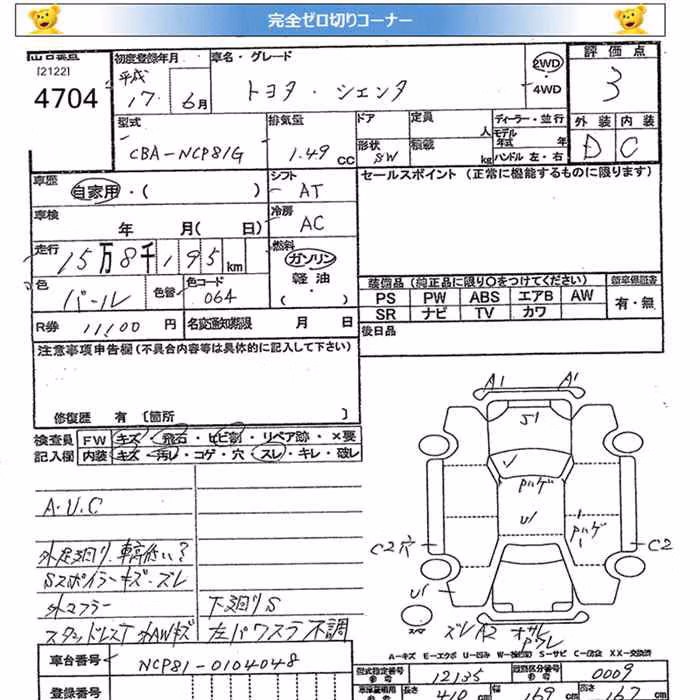 完全ゼロ切りコーナー
[2122]
4704
初度登録年月
平成
17 6月
車名・グレード
トヨタ・シエンタ
2WD
・
4WD
評価点
3
型式
CBA-NCP81G
排気量
1.49 CC
ドア
形状
SW
定員
人
積載
kg
ディーラー・並行
モデル
年式 年
ハンドル 左・右
外装 内装
D C
車歴
自家用・( )
シフト
AT
セールスポイント (正常に機能するものに限ります)
車検
年 月( 日)
冷房
AC
走行
15万8千195km
燃料
ガソリン
軽油
・( )
色
パール
色替
色コード
064
装備品 (純正品に限り○をつけてください)
新車保証書
PS PW ABS エアB AW
有・無
SR ナビ TV カワ
R券 11100 円
名変通知期限 月 日
後日品
注意事項申告欄 (不具合内容等は具体的に記入して下さい)
修復歴 有 [箇所 ]
検査員
記入欄
FW キズ・飛石・ヒビ割・リペア跡・×要
内装 キズ・汚レ・コゲ・穴・スレ・キレ・破レ
A1 A1
S1
Pハゲ
U1
Pハゲ
C2穴
C2
U1
ズレ A2
A・U・C
外足廻り、車高低い?
Sスポイラーキズ・ズレ
外マフラー
下廻りS
スタッドレスT 外AWキズ
左パワスラ不調
A-キズ E-エクボ U-凹み W-補修跡 S-サビ C-腐食 XX-交換済
車台番号
NCP81-0104048
型式指定番号
12135
類別区分番号
0009
登録番号
長さ
410
cm
幅
169
cm
高さ
cm